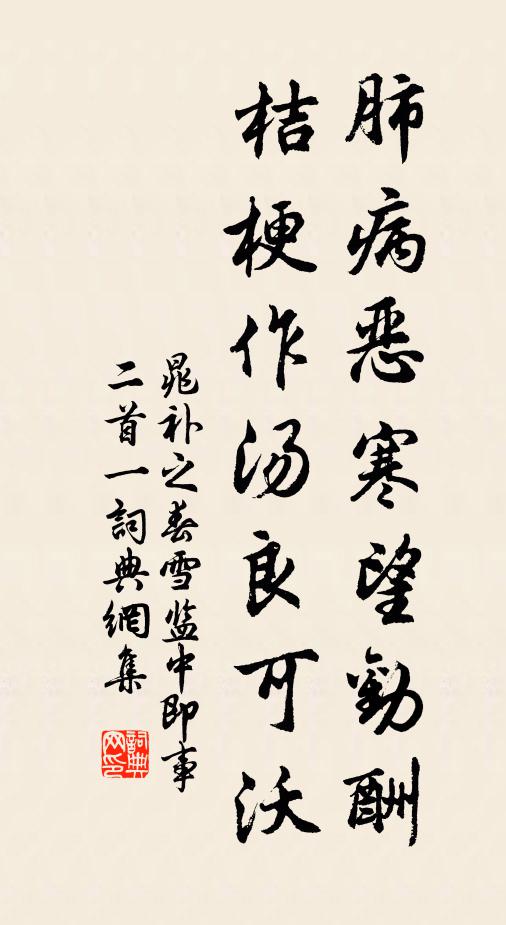 肺病恶寒望勸酬
桔梗作汤良可沃
晁补之春雪监中即事
二首一詞典網集
詞典
网印